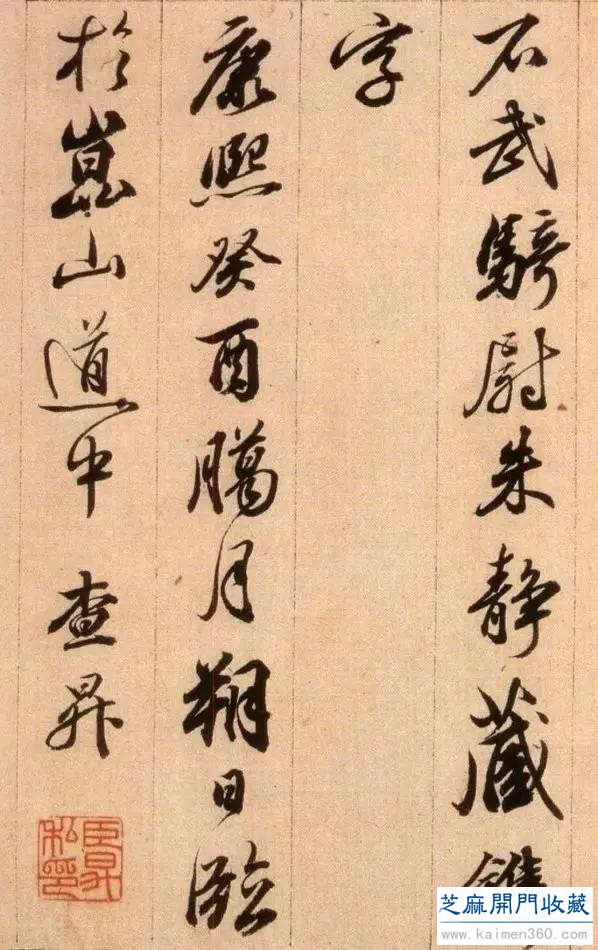 石武騎尉朱静藏鐫
字
康熙癸酉臈月朔日臨
於崑山道中 查昇
臣昇私印
芝麻開門收藏
www.kaimen360.com